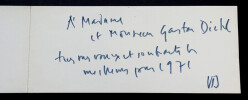 A Madame
et Monsieur Gaston Diehl
tous mes voeux et souhaits les
meilleurs pour 1971